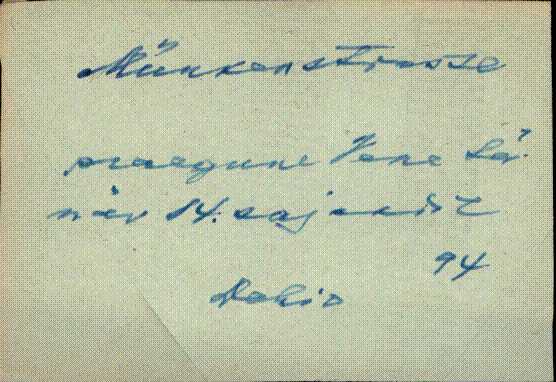 Münkenstrasse
praegune Vene tä-
näv 14. sajandil
94
Dehio